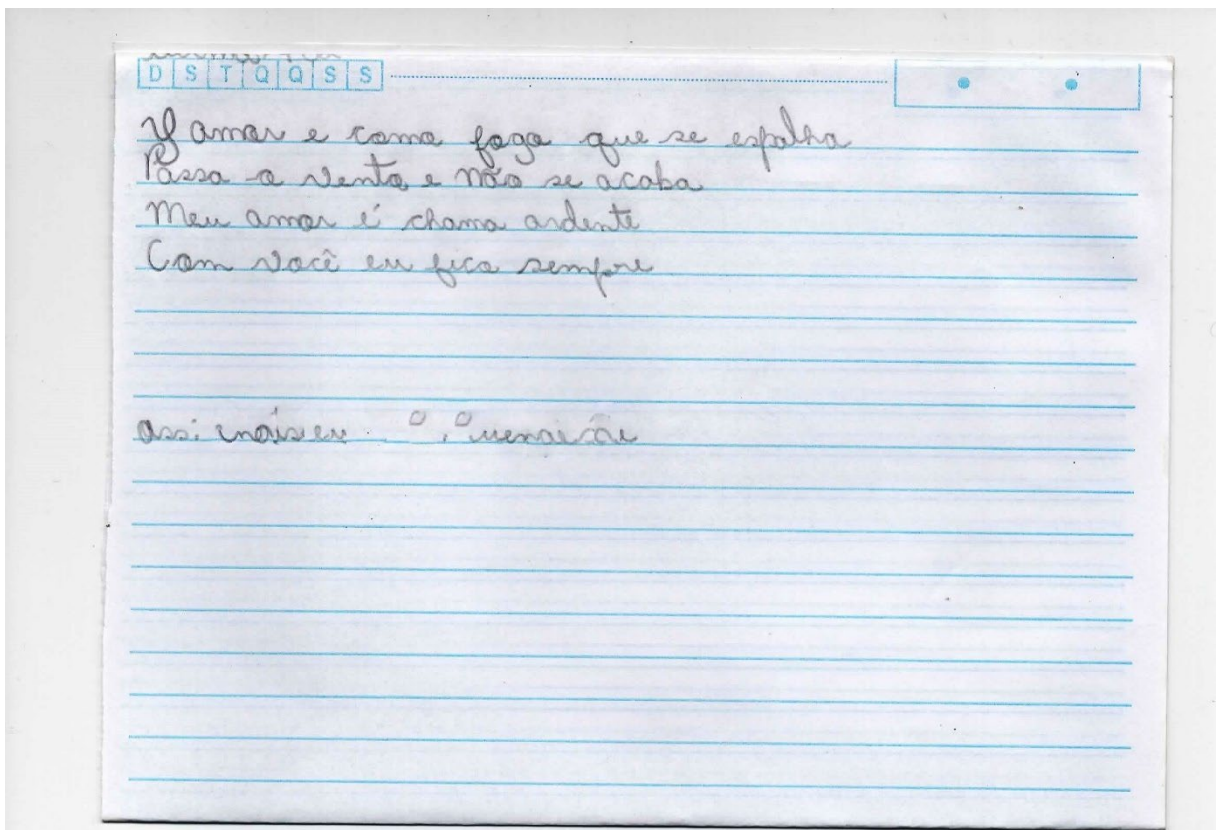 D S T Q Q S S
O amor e como fogo que se espalha
Passa o vento e não se acaba
Meu amor é chama ardente
Com você eu fico sempre